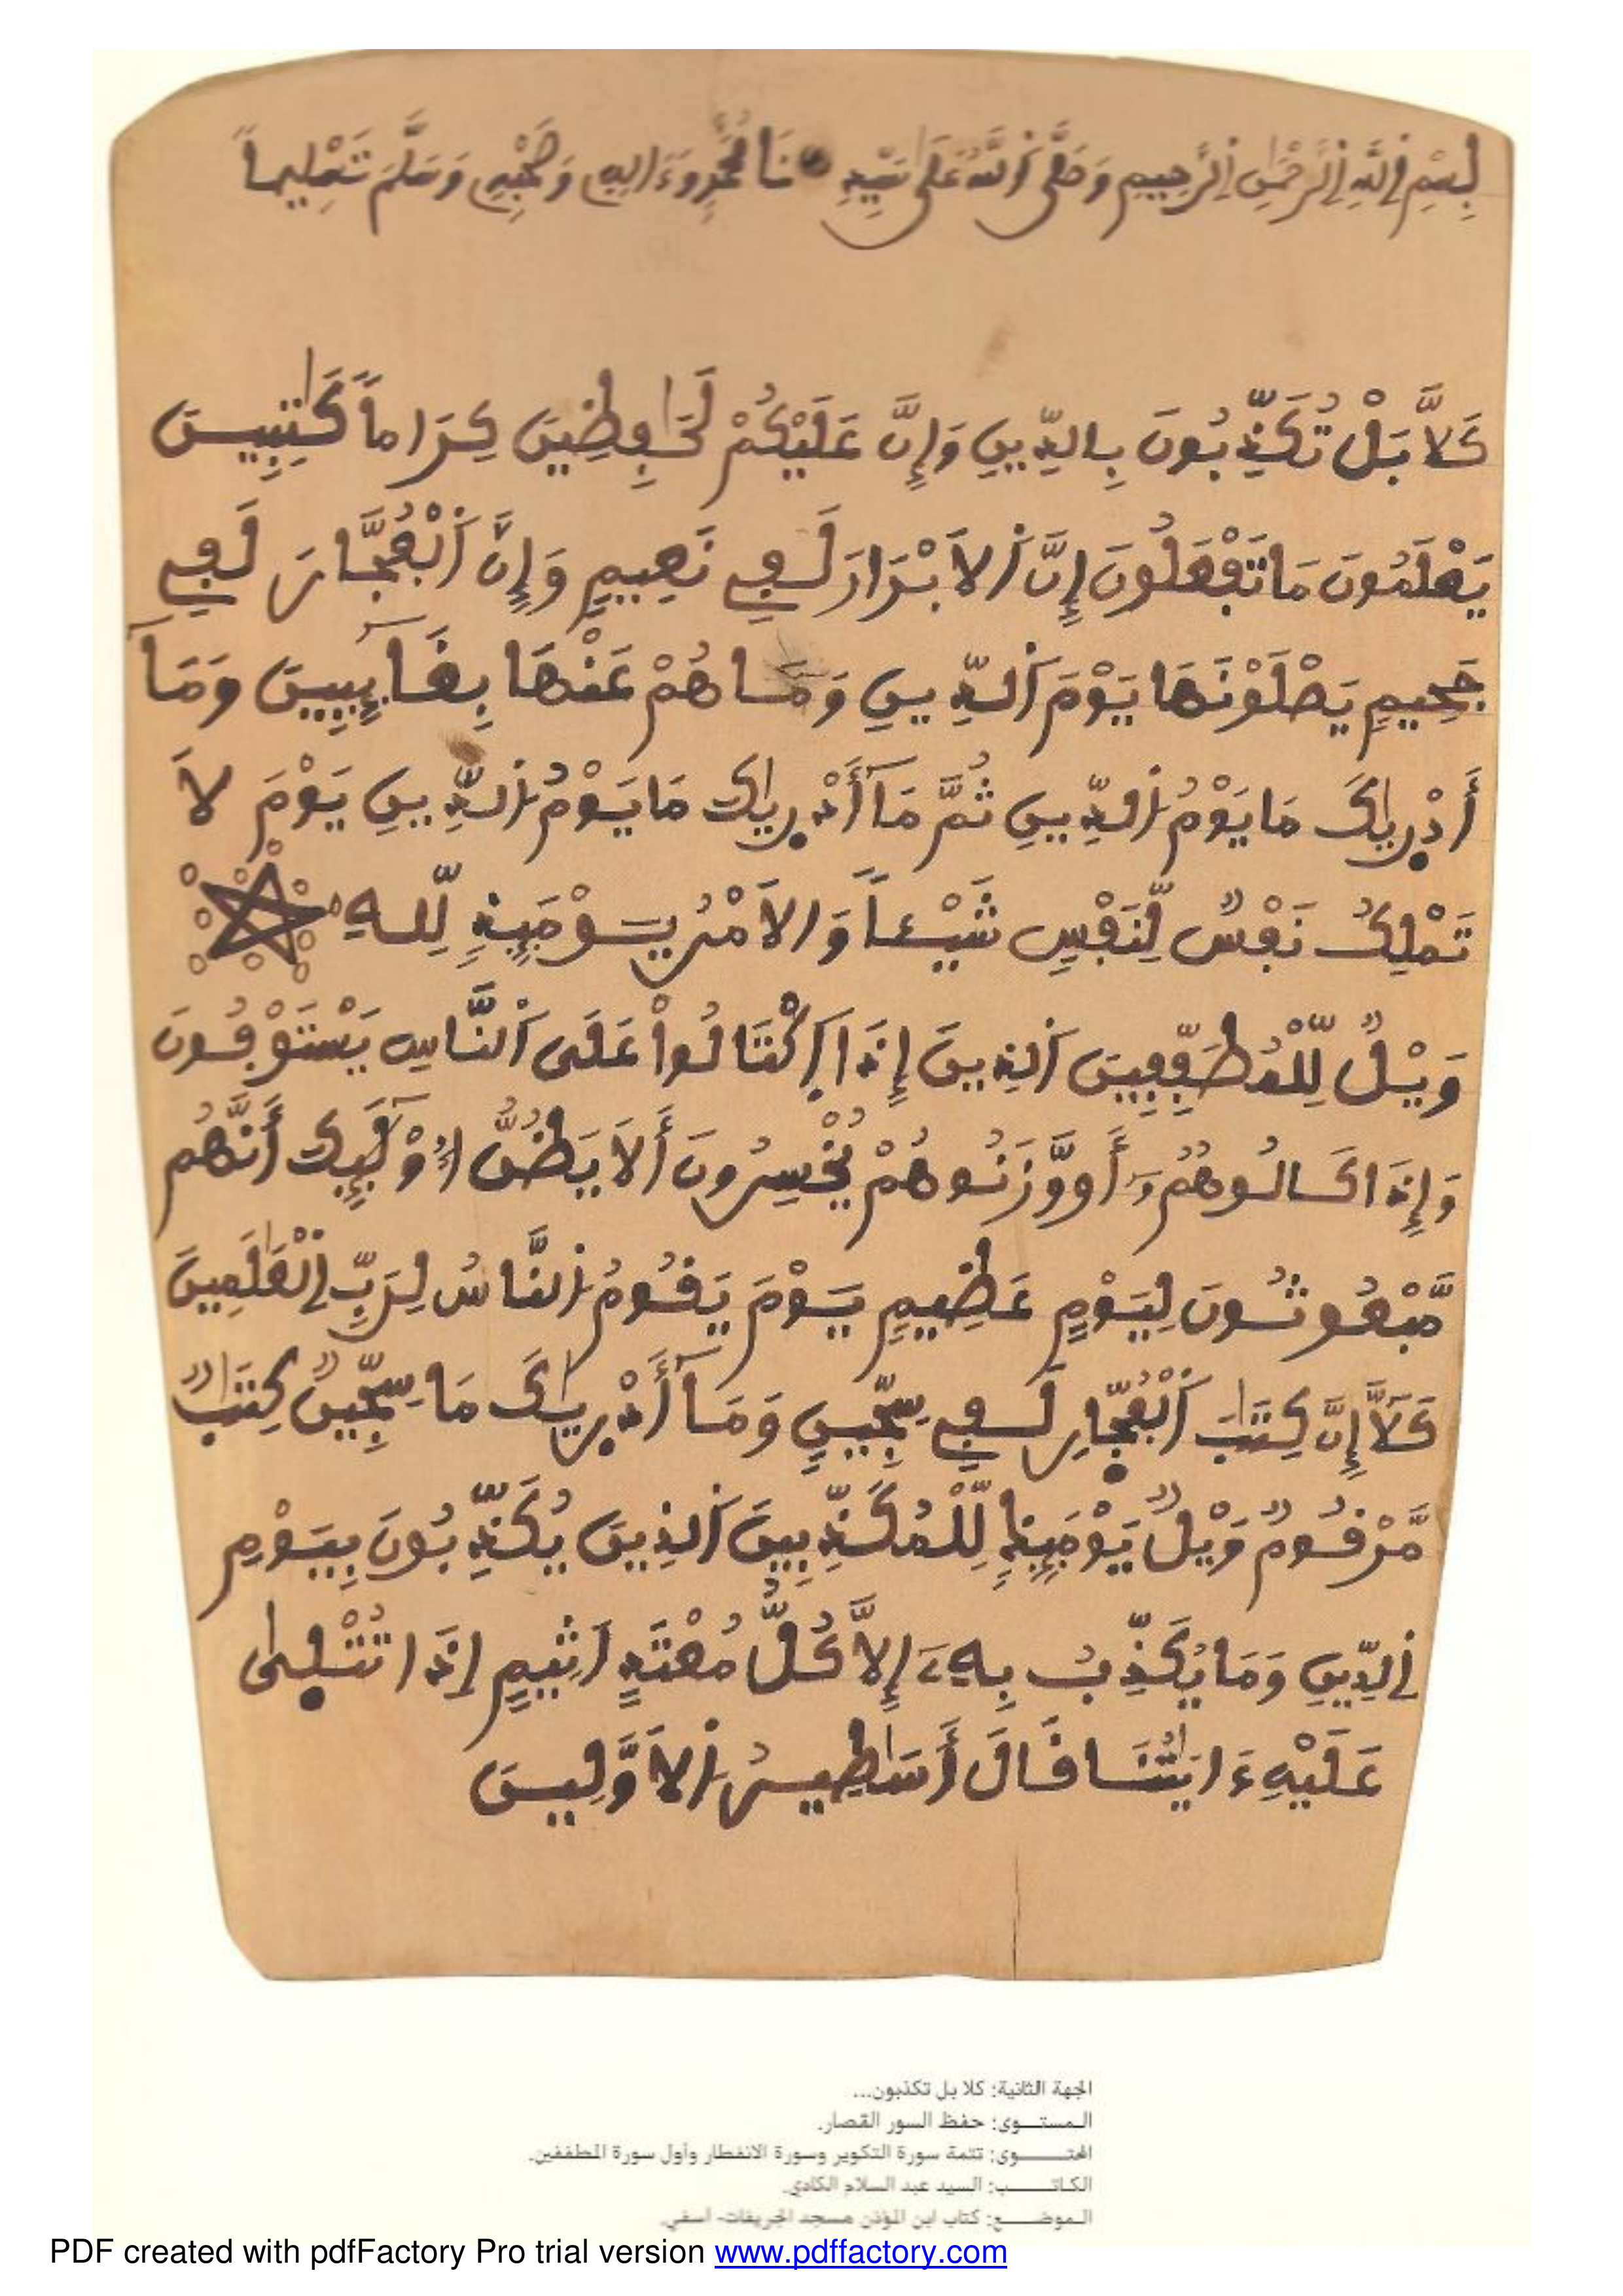 بِسْمِ اِ۬للَّهِ اِ۬لرَّحْمَٰنِ اِ۬لرَّحِيمِ وَصَلَّى اَ۬للَّهُ عَلَىٰ سَيِّدِنَا مُحَمَّدٍ وَءَالِهِ وَصَحْبِهِ وَسَلَّمَ تَسْلِيماً
كَلَّا بَلْ تُكَذِّبُونَ بِالدِّينِ وَإِنَّ عَلَيْكُمْ لَحَٰفِظِينَ كِرَاماً كَٰتِبِينَ
يَعْلَمُونَ مَا تَفْعَلُونَ إِنَّ اَ۬لَابْرَارَ لَفِے نَعِيمٍ وَإِنَّ اَ۬لْفُجَّارَ لَفِے
جَحِيمٍ يَصْلَوْنَهَا يَوْمَ اَ۬لدِّينِ وَمَا هُمْ عَنْهَا بِغَآئِبِينَ وَمَآ
أَدْر۪يٰكَ مَا يَوْمُ اُ۬لدِّينِ ثُمَّ مَآ أَدْر۪يٰكَ مَا يَوْمُ اُ۬لدِّينِ يَوْمَ لَا
تَمْلِكُ نَفْسٌ لِّنَفْسٍ شَيْـٔاً وَالَامْرُ يَوْمَئِذٍ لِّلهِ
وَيْلٌ لِّلْمُطَفِّفِينَ اَ۬لذِينَ إِذَا اَ۪كْتَالُوا۟ عَلَى اَ۬لنَّاسِ يَسْتَوْفُونَ
وَإِذَا كَالُوهُمُۥٓ أَو وَّزَنُوهُمْ يُخْسِرُونَ أَلَا يَظُنُّ أُوْلَٰٓئِكَ أَنَّهُم
مَّبْعُوثُونَ لِيَوْمٍ عَظِيمٍ يَوْمَ يَقُومُ اُ۬لنَّاسُ لِرَبِّ اِ۬لْعَٰلَمِينَ
كَلَّآ إِنَّ كِتَٰبَ اَ۬لْفُجّ۪ارِ لَفِے سِجِّينٍ وَمَآ أَدْر۪يٰكَ مَا سِجِّينٌ كِتَٰبٌ
مَّرْقُومٌ وَيْلٌ يَوْمَئِذٍ لِّلْمُكَذِّبِينَ اَ۬لذِينَ يُكَذِّبُونَ بِيَوْمِ
اِ۬لدِّينِ وَمَا يُكَذِّبُ بِهِۦٓ إِلَّا كُلُّ مُعْتَدٍ اَثِيمٍ اِذَا تُتْل۪يٰ
عَلَيْهِ ءَايَٰتُنَا قَالَ أَسَٰطِيرُ اُ۬لَاوَّلِينَ
الجهة الثانية: كلا بل تكذبون...
المستوى: حفظ السور القصار.
المحتوى: تتمة سورة التكوير وسورة الانفطار وأول سورة المطففين.
الكاتب: السيد عبد السلام الكادي.
الموضع: كتاب ابن المؤذن مسجد الجريفات- آسفي.
PDF created with pdfFactory Pro trial version www.pdffactory.com